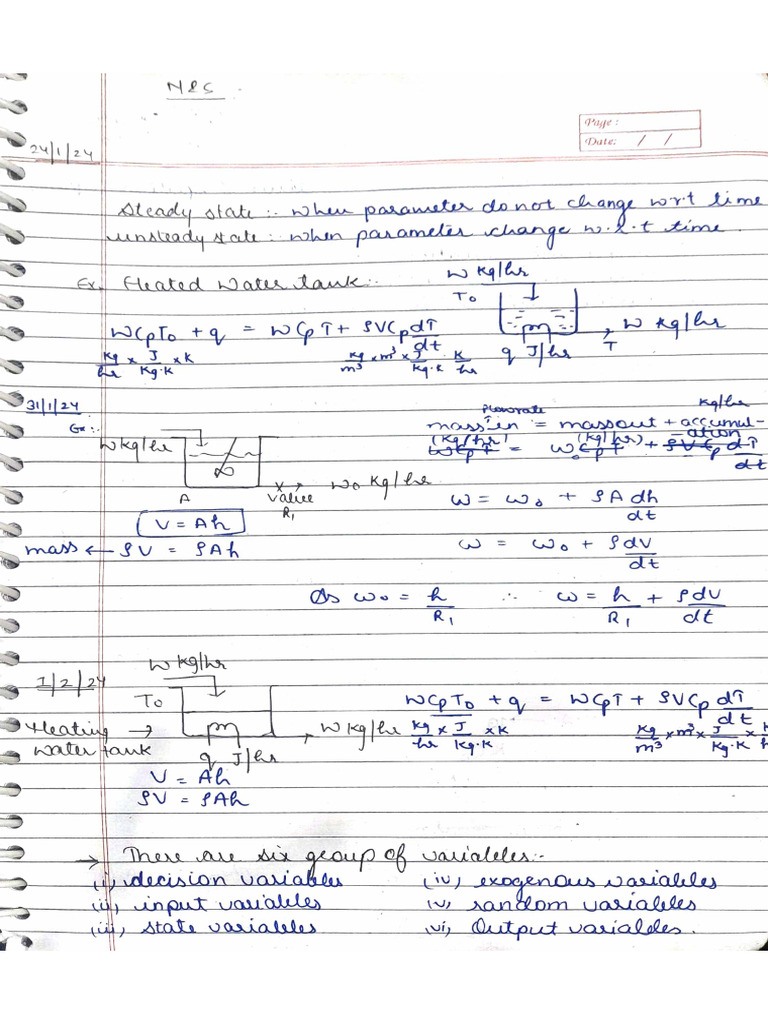 N&S
Page :
24/1/24
Date: / /
Steady state :- when parameter do not change w.r.t time
unsteady state :- when parameter change w.r.t time.
Ex. Heated water tank :-
W kg/hr
To
WCpTo + q = WCpT + ρVCp dT/dt
kg/hr × J/kg.K × K
kg/m³ × m³ × J/kg.K . K/hr
q J/hr
T
W kg/hr
31/1/24
Ex :-
W kg/hr
A
valve
R1
Wo kg/hr
V = Ah
mass ← ρV = ρAh
flowrate
kg/hr
mass in = mass out + accumul-
(kg/hr) (kg/hr) ation
WCpT = WoCpT + ρVCp dT/dt
ω = ωo + ρA dh/dt
ω = ωo + ρdV/dt
As ωo = h/R1 ∴ ω = h/R1 + ρdV/dt
1/2/24
W kg/hr
To
Heating →
water tank
W kg/hr
q J/hr
WCpTo + q = WCpT + ρVCp dT/dt
kg/hr × J/kg.K × K
kg/m³ × m³ × J/kg.K × K/h
V = Ah
ρV = ρAh
→ There are six group of variables :-
(i) decision variables (iv) exogenous variables
(ii) input variables (v) random variables
(iii) state variables (vi) Output variables.